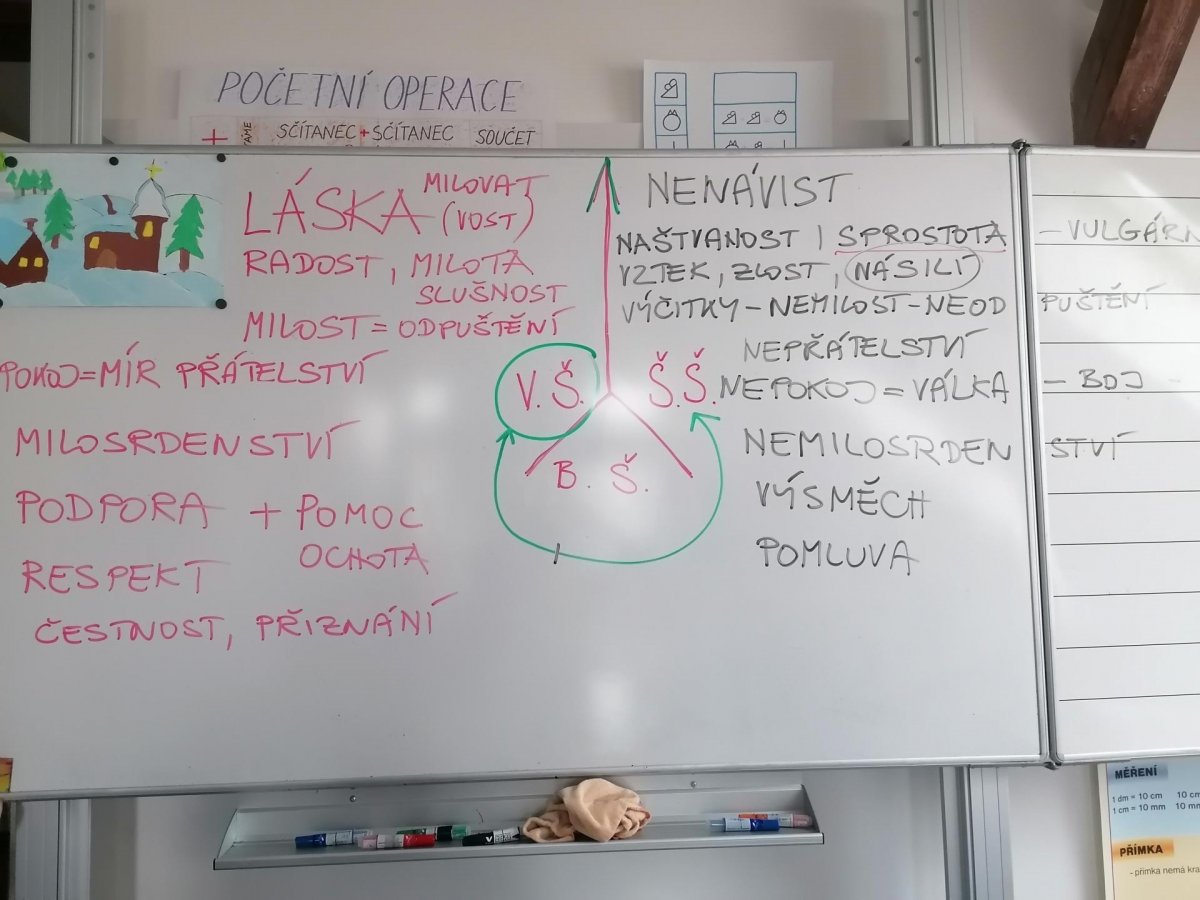 POČETNÍ OPERACE
+ SČÍTANEC + SČÍTANEC SOUČET
LÁSKA MILOVAT
(VOST)
RADOST, MILOTA
SLUŠNOST
MILOST = ODPUŠTĚNÍ
POKOJ = MÍR PŘÁTELSTVÍ
MILOSRDENSTVÍ
PODPORA + POMOC
OCHOTA
RESPEKT
ČESTNOST, PŘIZNÁNÍ
V. Š. Š.Š.
B. Š.
NENÁVIST
NAŠTVANOST | SPROSTOTA - VULGÁRN
VZTEK, ZLOST, NÁSILÍ
VÝČITKY - NEMILOST - NEODPUŠTĚNÍ
NEPŘÁTELSTVÍ
NEPOKOJ = VÁLKA - BOJ
NEMILOSRDENSTVÍ
VÝSMĚCH
POMLUVA
MĚŘENÍ
1 dm = 10 cm 10 cm
1 cm = 10 mm 10 mm
PŘÍMKA
- přímka nemá kra